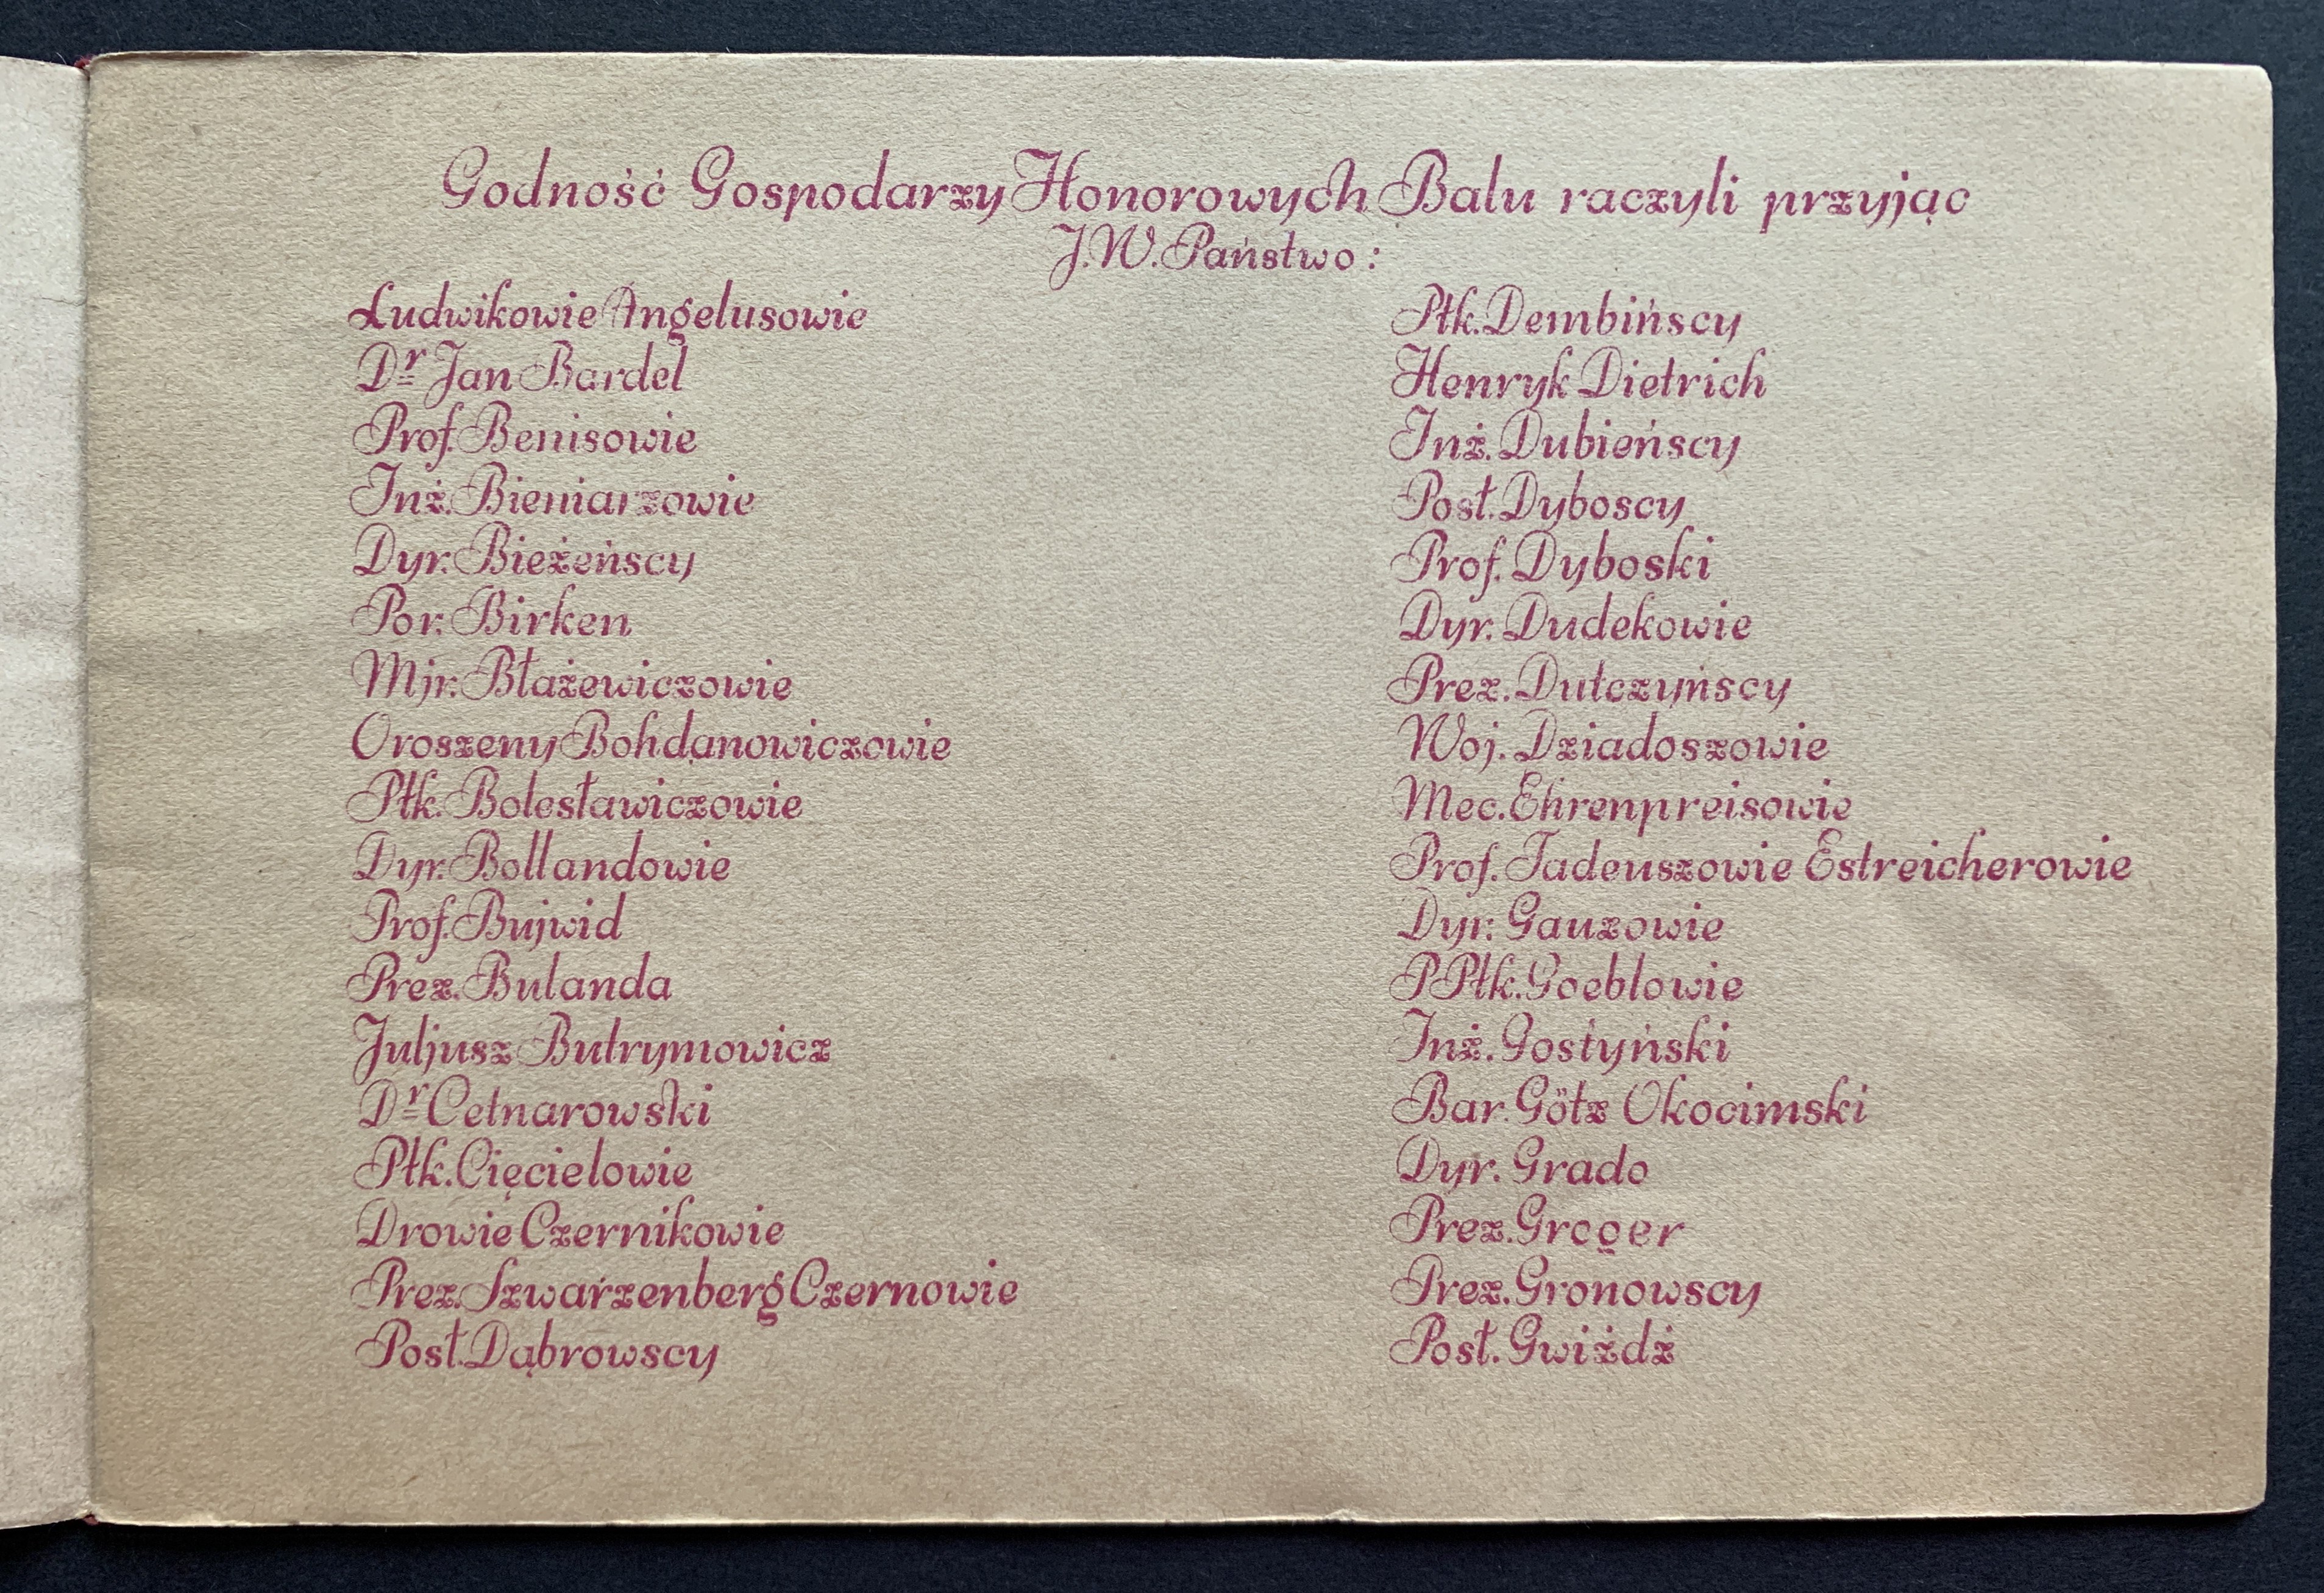 Godność Gospodarzy Honorowych Balu raczyli przyjąc
J.W. Państwo:
Ludwikowie Angelusowie
Dr Jan Bardel
Prof. Benisowie
Inż. Bieniarzowie
Dyr. Bieżeńscy
Por. Birken
Mjr. Błażewiczowie
Oroszeny Bohdanowiczowie
Płk. Bolesławiczowie
Dyr. Bollandowie
Prof. Bujwid
Prez. Bulanda
Juljusz Butrymowicz
Dr Cetnarowski
Płk. Cięcielowie
Drowie Czernikowie
Prez. Szwarzenberg Czernowie
Post. Dąbrowscy
Płk. Dembińscy
Henryk Dietrich
Inż. Dubieńscy
Post. Dyboscy
Prof. Dyboski
Dyr. Dudekowie
Prez. Dutczyńscy
Woj. Dziadoszowie
Mec. Ehrenpreisowie
Prof. Tadeuszowie Estreicherowie
Dyr. Gauzowie
PPłk. Goeblowie
Inż. Gostyński
Bar. Götz Okocimski
Dyr. Grado
Prez. Groger
Prez. Gronowscy
Post. Gwiżdż